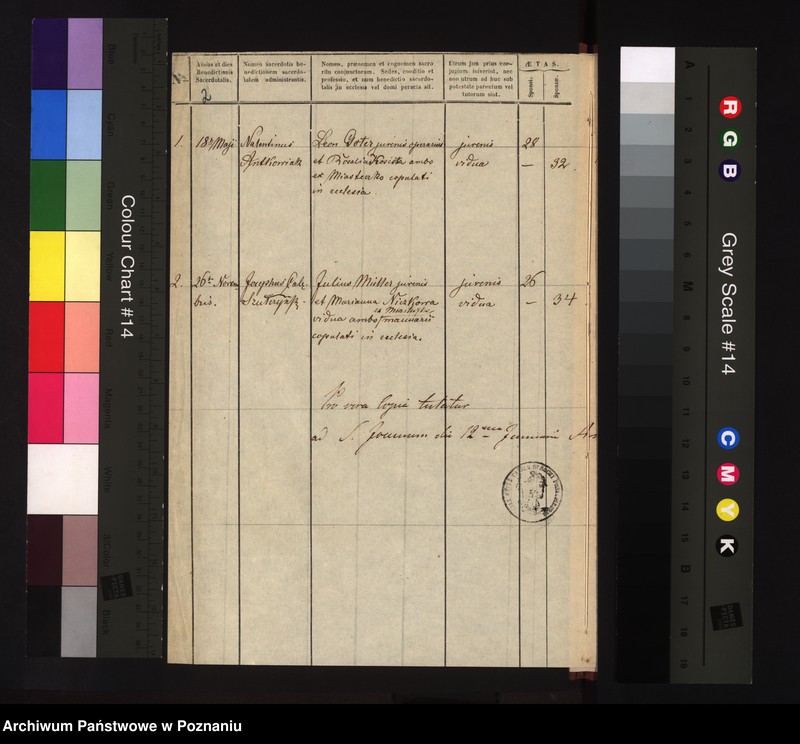 Nro
Annus et dies
Benedictionis
Sacerdotalis.
2
Nomen sacerdotis be-
nedictionem sacerdo-
talem administrantis.
Nomen, praenomen et cognomen sacro
ritu conjunctorum. Sedes, conditio et
professio, et num benedictio sacerdo-
talis in ecclesia vel domi peracta sit.
Utrum jam prius con-
jugium inierint, nec
non utrum ad huc sub
potestate parentum vel
tutorum sint.
ÆTAS.
Sponsi.
Sponsae.
1.
18 Maji
Valentinus
Antkowiak
Leon juvenis operarius
et Rosalia ambo
ex Miasteczko copulati
in ecclesia.
juvenis
vidua
28
—
32.
2.
26t Novem
bris.
Josephus
Julius Müller juvenis
et Marianna
vidua ambo
copulati in ecclesia.
juvenis
vidua
26
—
34
Pro vera copia
ad S. Joannem die 12 Januarii
Colour Chart #14
Blue
Cyan
Green
Yellow
Red
Magenta
White
3/Color
Black
Grey Scale #14
R
G
B
C
M
Y
K
A
1
2
3
4
5
6
M
8
9
10
11
12
13
14
15
B
17
18
19
Archiwum Państwowe w Poznaniu